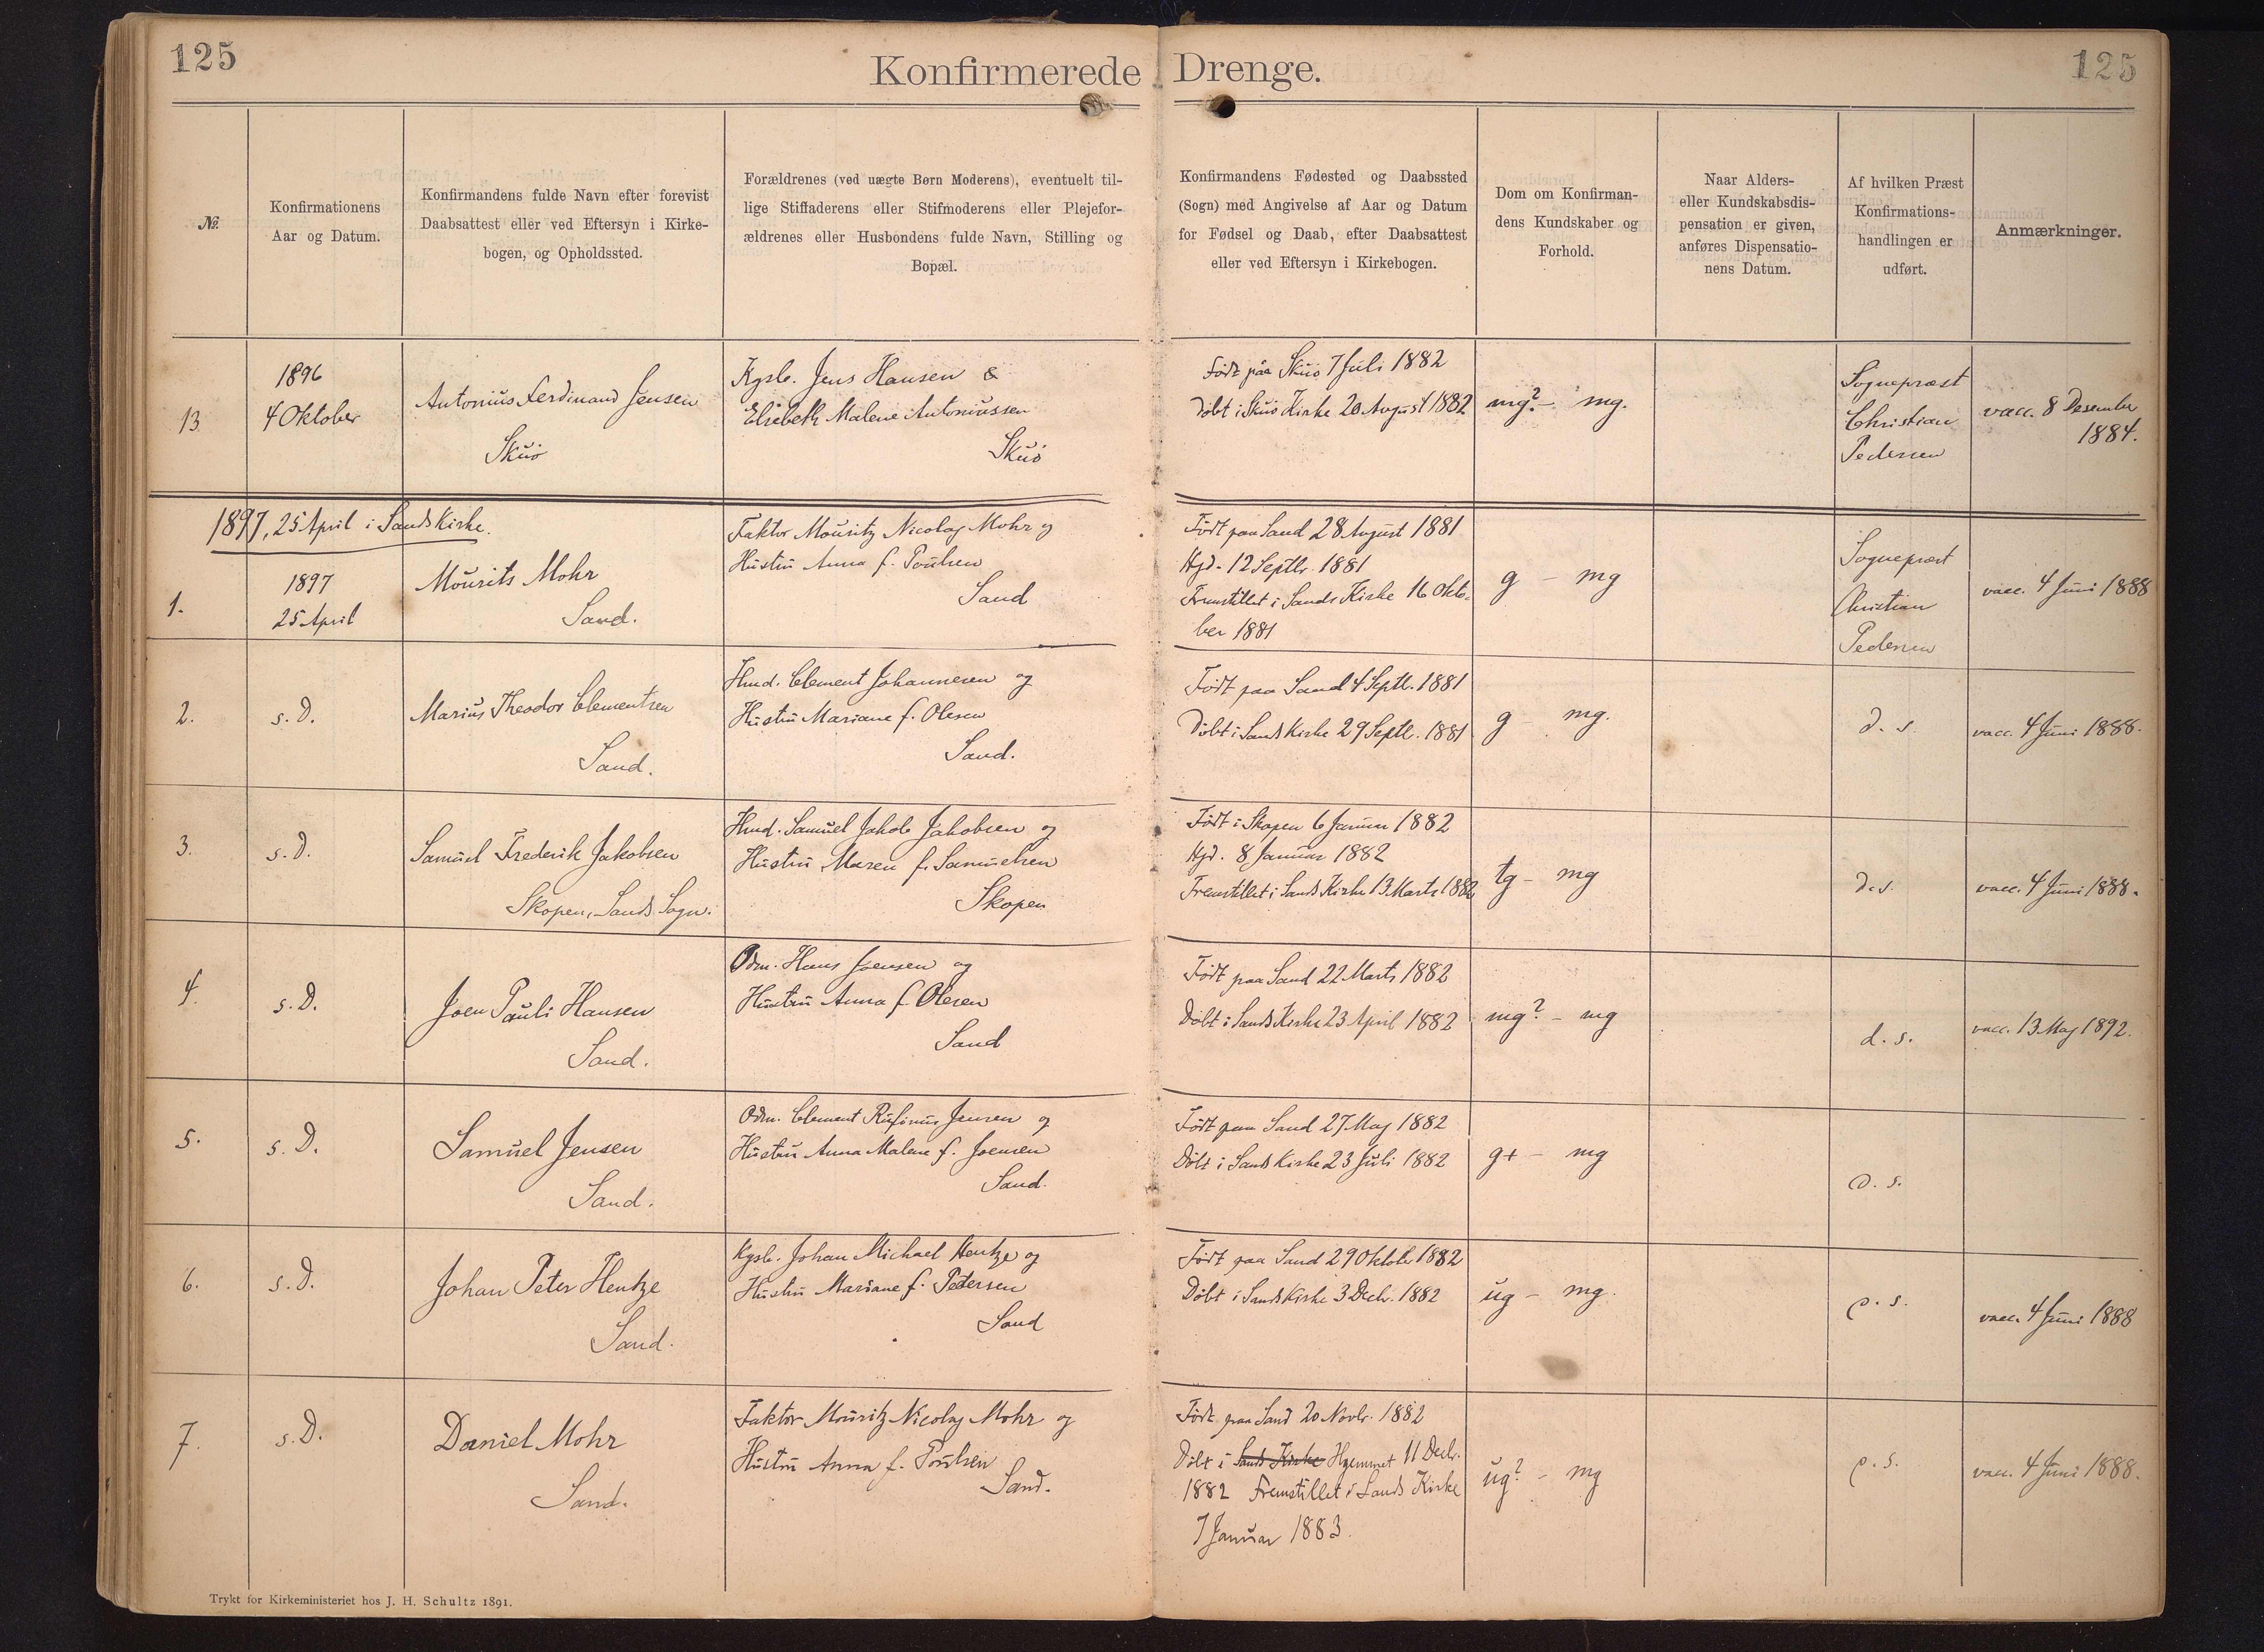 125
Konfirmerede Drenge.
125
№.
Konfirmationens
Aar og Datum.
Konfirmandens fulde Navn efter forevist
Daabsattest eller ved Eftersyn i Kirke-
bogen, og Opholdssted.
Forældrenes (ved uægte Børn Moderens), eventuelt til-
lige Stiffaderens eller Stifmoderens eller Plejefor-
ældrenes eller Husbondens fulde Navn, Stilling og
Bopæl.
Konfirmandens Fødested og Daabssted
(Sogn) med Angivelse af Aar og Datum
for Fødsel og Daab, efter Daabsattest
eller ved Eftersyn i Kirkebogen.
Dom om Konfirman-
dens Kundskaber og
Forhold.
Naar Alders-
eller Kundskabsdis-
pensation er given,
anføres Dispensatio-
nens Datum.
Af hvilken Præst
Konfirmations-
handlingen er
udført.
Anmærkninger.
13
1896
4 Oktober
Antonius Ferdinand Jensen
Skuö
Kgsb. Jens Hansen &
Elsebeth Malene Antoniussen
Skuö
Født paa Skuö 7 Juli 1882
Döbt i Skuö Kirke 20 August 1882
mg? - mg.
Sognepræst
Christian
Pedersen
vacc. 8 Desember
1884.
1897, 25 April i Sands Kirke.
1.
1897
25 April
Mourits Mohr
Sand.
Faktor Mouritz Nicolay Mohr og
Hustru Anna f. Poulsen
Sand
Født paa Sand 28 August 1881
Hjd. 12 Septbr. 1881
Fremstillet i Sands Kirke 16 Okto-
ber 1881
g - mg
Sognepræst
Christian
Pedersen
vacc. 4 Juni 1888
2.
s. D.
Marius Theodor Clementsen
Sand.
Hmd. Clement Johannesen og
Hustru Mariane f. Olesen
Sand.
Født paa Sand 4 Septb. 1881
Döbt i Sands Kirke 29 Septb. 1881
g - mg.
d. s.
vacc. 4 Juni 1888.
3.
s. D.
Samuel Frederik Jakobsen
Skopen, Sands Sogn.
Hmd. Samuel Jakob Jakobsen og
Hustru Maren f. Samuelsen
Skopen
Født i Skopen 6 Januar 1882
Hjd. 8 Januar 1882
Fremstillet i Sands Kirke 13 Marts 1882
tg - mg
d. s.
vacc. 4 Juni 1888.
4.
s. D.
Joen Pauli Hansen
Sand.
Odm. Hans Joensen og
Hustru Anna f. Olesen
Sand
Født paa Sand 22 Marts 1882
Döbt i Sands Kirke 23 April 1882
mg? - mg
d. s.
vacc. 13 Maj 1892.
5.
s. D.
Samuel Jensen
Sand.
Odm. Clement Rufinus Jensen og
Hustru Anna Malene f. Joensen
Sand.
Født paa Sand 27 Maj 1882
Döbt i Sands Kirke 23 Juli 1882
g+ - mg
d. s.
6.
s. D.
Johan Peter Hentze
Sand.
Kgsb. Johan Michael Hentze og
Hustru Mariane f. Petersen
Sand
Født paa Sand 29 Oktob 1882
Döbt i Sands Kirke 3 Decb. 1882
ug - mg.
d. s.
vacc. 4 Juni 1888
7.
s. D.
Daniel Mohr
Sand.
Faktor Mouritz Nicolay Mohr og
Hustru Anna f. Poulsen
Sand.
Født paa Sand 20 Novbr. 1882
Döbt i Sands Kirke Hjemmet 11 Decb.
1882 Fremstillet i Sands Kirke
7 Januar 1883.
ug? - mg
d. s.
vacc. 4 Juni 1888.
Trykt for Kirkeministeriet hos J. H. Schultz 1891.